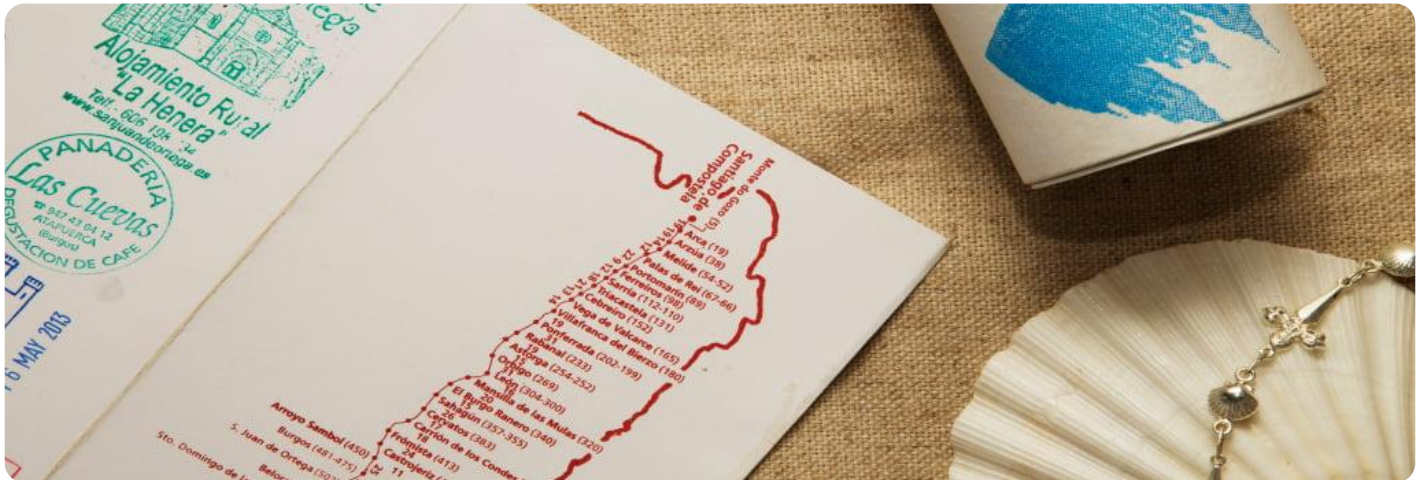 Alojamiento Rural
"La Henera"
www.sanjuandeortega.es
PANADERIA
Las Cuevas
☎ 947 43 04 12
ATAPUERCA
(Burgos)
DEGUSTACION DE CAFE
6 MAY 2013
Monte do Gozo (5)
Santiago de
Compostela
Arca (19)
Arzúa (38)
Melide (54-52)
Palas de Rei (67-66)
Portomarín (89)
Ferreiros (98)
Sarria (112-110)
Triacastela (131)
Cebreiro (152)
Vega de Valcarce (165)
Villafranca del Bierzo (180)
Ponferrada (202-199)
Rabanal (233)
Astorga (254-252)
Orbigo (269)
León (304-300)
Mansilla de las Mulas (320)
El Burgo Ranero (340)
Sahagún (357-355)
Cervatos (383)
Carrión de los Condes
Frómista (413)
Castrojeriz
Arroyo Sambol (450)
Burgos (481-475)
S. Juan de Ortega
Sto. Domingo de